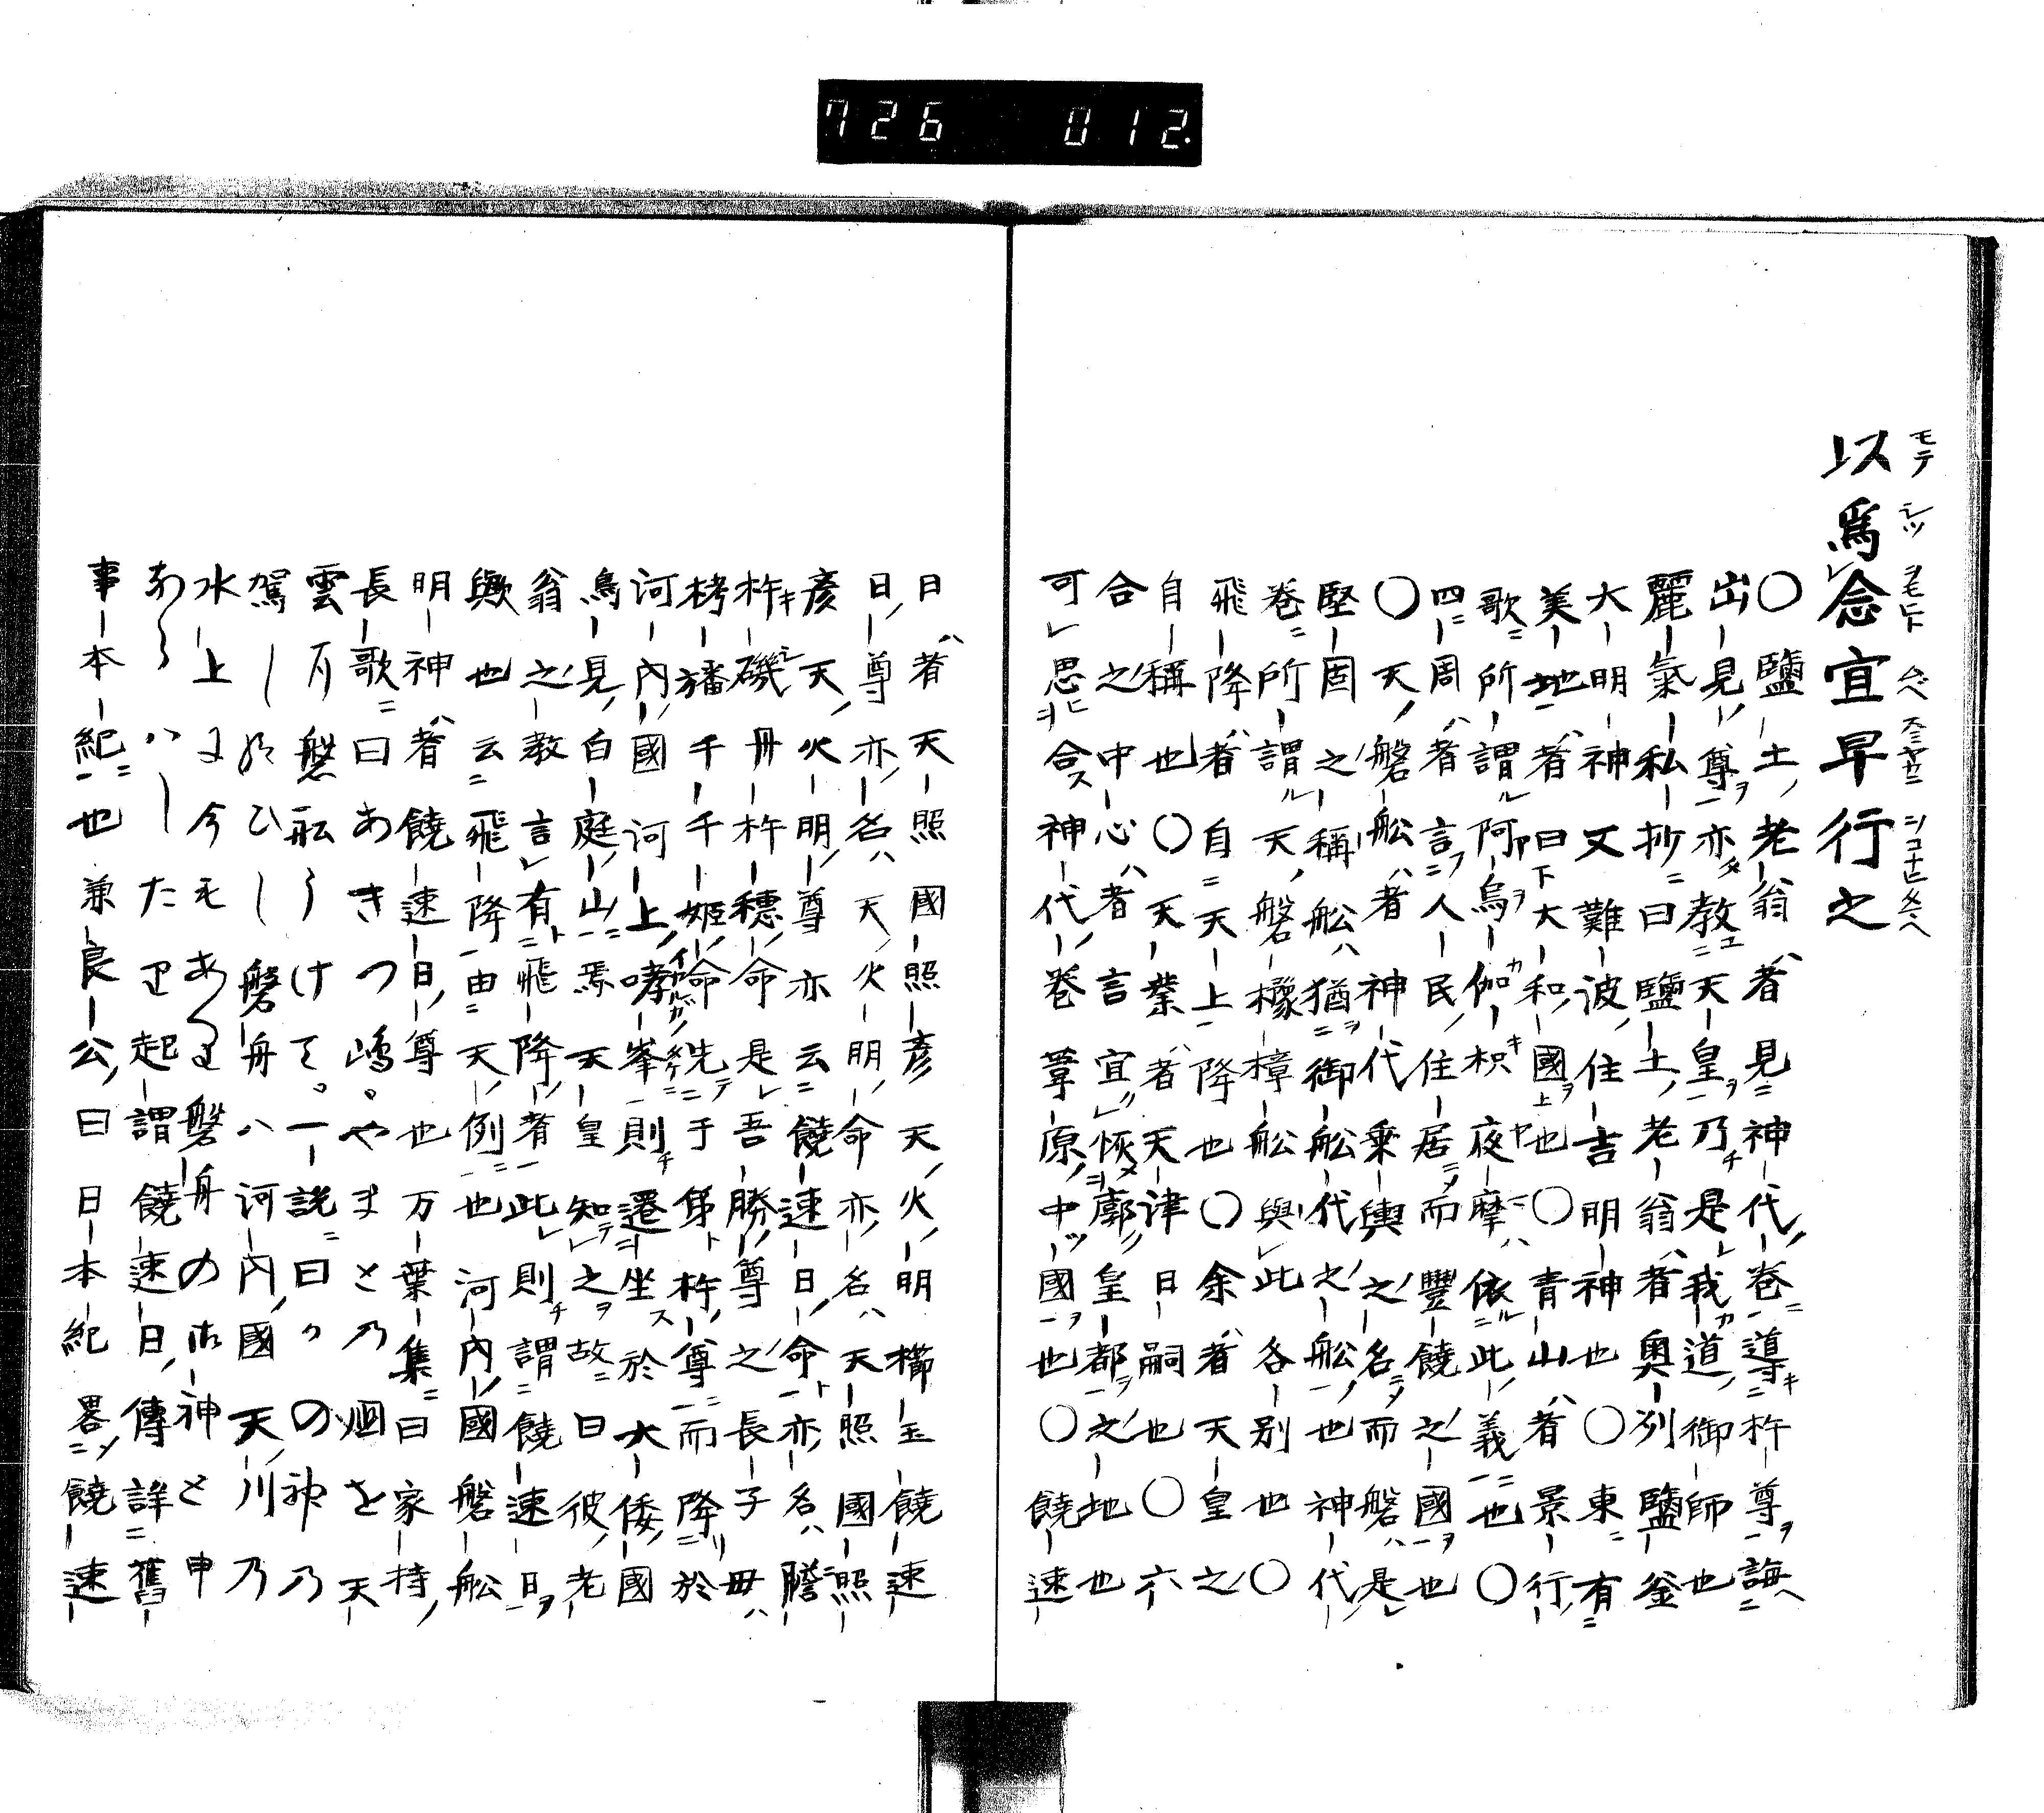 726 012.
以爲念宜早行之
〇鹽土老翁者見神代卷導杵尊誨
出見尊亦教天皇乃是我道御師也
麗氣私抄曰鹽土老翁者奥列鹽釜
大明神又難波住吉明神也〇東有
美地者曰大和國也〇青山者景行
歌所謂阿烏伽枳夜摩依此義也〇
四周者言人民住居而豐饒之國也
〇天磐舩者神代乗輿之名而磐是
堅固之稱舩猶御舩代之舩也神代
卷所謂天磐櫲樟舩與此各别也〇
飛降者自天上降也〇余者天皇之
自稱也〇天業者天津日嗣也〇六
合之中心者言宜恢廓皇都之地也
可思合神代卷葦原中國也〇饒速
日者天照國照彦天火明櫛玉饒速
日尊亦名天火明命亦名天照國照
彦天火明尊亦云饒速日命亦名膽
杵磯丹杵穗命是吾勝尊之長子毋
栲旛千千姬命先于第杵尊而降於
河內國河上哮峯則遷坐於大倭國
鳥見白庭山焉天皇知之故曰彼老
翁之教言有飛降者此則謂饒速日
歟也云飛降由天例也河內國磐舩
明神者饒速日尊也万葉集曰家持
長歌曰あきつ嶋。やまとの烟を天
雲尓磐舩うけて。一説曰かの神乃
駕しゐひし磐舟ハ河内國天川乃
水上よ今もあり磐舟の御神と申
あらハしたり起謂饒速日傳詳舊
事本紀也兼良公曰日本紀畧饒速